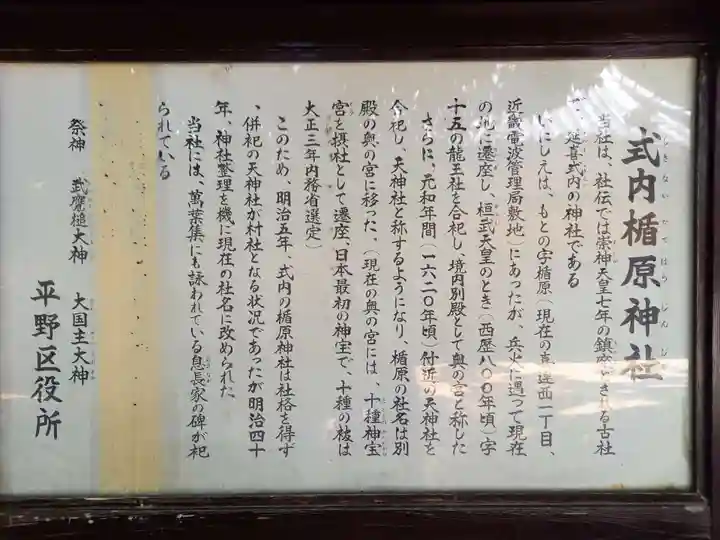 式内楯原神社
しきない たてはら じんじゃ
当社は、社伝では崇神天皇七年の鎮座とされる古社
で、延喜式内の神社である
いにしえは、もとの字楯原（現在の喜連西一丁目、
近畿電波管理局敷地）にあったが、兵火に遇って現在
の地に遷座し、桓武天皇のとき（西歴八〇〇年頃）字
十五の龍王社を合祀し、境内別殿として奥の宮と称した
さらに、元和年間（一六二〇年頃）付近の天神社を
合祀し、天神社と称するようになり、楯原の社名は別
殿の奥の宮に移った。（現在の奥の宮には、十種神宝
宮を摂社として遷座、日本最初の神宝で、十種の祓は
大正三年内務省選定）
このため、明治五年、式内の楯原神社は社格を得ず
、併祀の天神社が村社となる状況であったが明治四十
年、神社整理を機に現在の社名に改められた
当社には、萬葉集にも詠われている息長家の碑が祀
られている
祭神 武甕槌大神 大国主大神
平野区役所